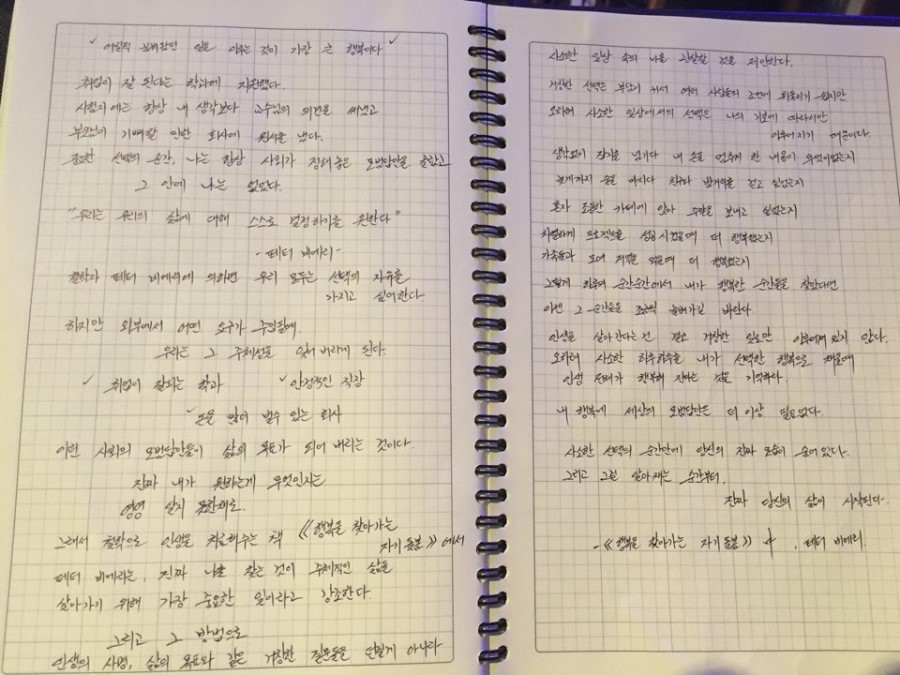 취업이 잘 된다는 학과에 지원했고.
사회의 에는 항상 내 생각보다 교수님의 의견을 써냈고
부모님이 기뻐할 만한 회사에 원서를 냈다.
중요한 선택의 순간, 나는 항상 사회가 정해놓은 모범답안을 골랐고
그 안에 나는 없었다.
"우리는 우리의 삶에 대해 스스로 결정하기를 원한다"
- 페터 비에리 -
철학자 페터 비에리에 의하면 우리 모두는 선택의 자유를
가지고 싶어한다.
하지만 외부에서 어떤 요구가 주입될때
우리는 그 주체성을 잃어 버리게 된다.
✓ 취업이 잘되는 학과 ✓ 안정적인 직장
✓ 돈을 많이 벌수 있는 회사
이런 사회의 모범답안들이 삶의 목표가 되어 버리는 것이다
진짜 내가 원하는게 무엇인지는
영영 알지 못한채로.
그래서 철학으로 인생을 치료해주는 책 《행복을 찾아가는
자기 돌봄》에서
페터 비에리는, 진짜 나를 찾는 것이 주체적인 삶을
살아가기 위해 가장 중요한 일이라고 강조한다.
그리고 그 방법으로
인생의 사명, 삶의 목표와 같은 거창한 질문들을 던질게 아니라
사소한 일상 속의 나를 관찰할 것을 제안한다.
거창한 선택은 부모이 커서 여러 사람들의 조언에 휘둘리기 쉽지만
오히려 사소한 일상에서의 선택은 나의 기호에 따라서만
이루어지기 때문이다.
생각없이 잡지를 넘기다 내 손을 멈추게 한 내용이 무엇이었는지
늦게까지 술을 마시다 친구와 밤거리를 걷고 싶었는지
혼자 조용한 카페에 앉아 주말을 보내고 싶었는지
치열하게 프로젝트를 성공시켰을때 더 행복했는지
가족들과 모여 저녁을 먹을때 더 행복했는지
그렇게 하루의 순간순간에서 내가 행복한 순간들을 찾았다면
이젠 그 순간들을 조금씩 늘려가길 바란다.
인생을 살아간다는건 결코 거창한 일로만 이루어져 있지 않다.
오히려 사소한 하루하루를 내가 선택한 행복으로 채울때
인생 전체가 행복해 진다는 것을 기억하라.
내 행복에 세상의 모범답안은 더 이상 필요없다.
사소한 선택의 순간안에 당신의 진짜 모습이 숨어있다.
그리고 그걸 알아채는 순간부터,
진짜 당신의 삶이 시작된다.
-《행복을 찾아가는 자기 돌봄》 中, 페터 비에리.